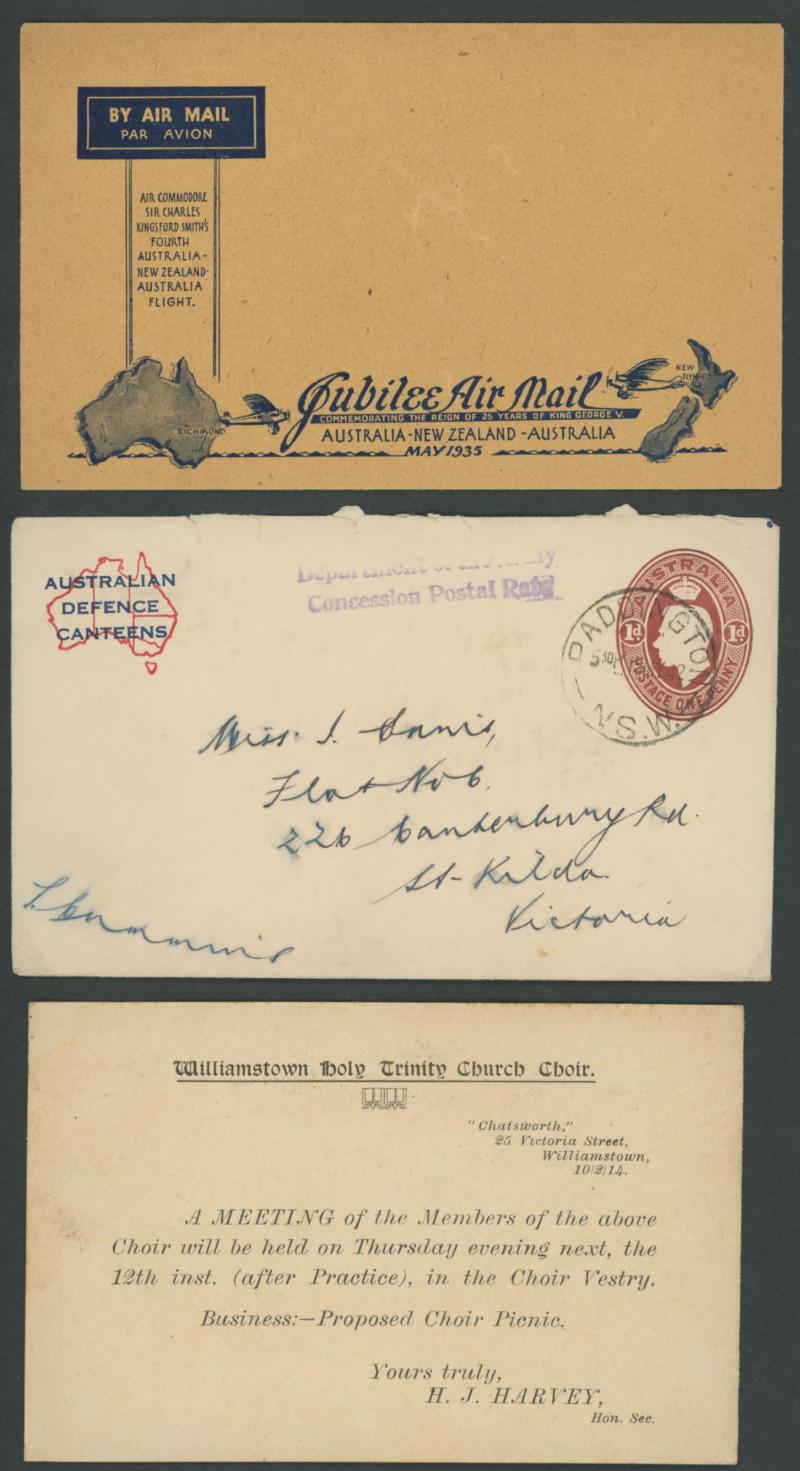 BY AIR MAIL
PAR AVION
AIR COMMODORE
SIR CHARLES
KINGSFORD SMITH'S
FOURTH
AUSTRALIA-
NEW ZEALAND-
AUSTRALIA
FLIGHT.
RICHMOND
NEW
PLYMOUTH
Jubilee Air Mail
COMMEMORATING THE REIGN OF 25 YEARS OF KING GEORGE V.
AUSTRALIA-NEW ZEALAND-AUSTRALIA
MAY 1935
AUSTRALIAN
DEFENCE
CANTEENS
Department of the Army
Concession Postal Rate
AUSTRALIA
1d 1d
POSTAGE ONE PENNY
PADDINGTON
N.S.W.
Miss. J.
Flat No 6.
226 Canterbury Rd.
St-Kilda.
Victoria
Williamstown Holy Trinity Church Choir.
"Chatsworth,"
25 Victoria Street,
Williamstown,
10/2/14.
A MEETING of the Members of the above
Choir will be held on Thursday evening next, the
12th inst. (after Practice), in the Choir Vestry.
Business:—Proposed Choir Picnic.
Yours truly,
H. J. HARVEY,
Hon. Sec.